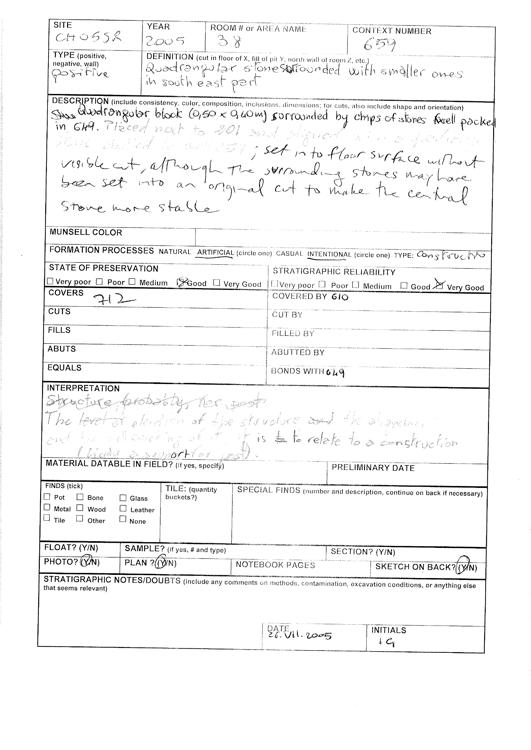 SITE YEAR ROOM # or AREA NAME CONTEXT NUMBER
CH05SR 2005 38 659
TYPE (positive, negative, wall) DEFINITION (cut in floor of X, fill of pit Y, north wall of room Z, etc.)
positive Quadrangular stone surrounded with smaller ones
in south east part
DESCRIPTION (include consistency, color, composition, inclusions, dimensions; for cuts, also include shape and orientation)
Quadrangular block (0,50 x 0,60m) sorrounded by chips of stores packed
in 649. Placed next to 201 and
; set into floor surface without
visible cut, although the surrounding stones may have
been set into an original cut to make the central
stone more stable
MUNSELL COLOR
FORMATION PROCESSES NATURAL ARTIFICIAL (circle one) CASUAL INTENTIONAL (circle one) TYPE: Constructio
STATE OF PRESERVATION STRATIGRAPHIC RELIABILITY
Very poor Poor Medium Good Very Good Very poor Poor Medium Good Very Good
COVERS 712 COVERED BY 610
CUTS CUT BY
FILLS FILLED BY
ABUTS ABUTTED BY
EQUALS BONDS WITH 649
INTERPRETATION
Structure probably for post
The level of of the structure and the
and the of it is to relate to a construction
MATERIAL DATABLE IN FIELD? (if yes, specify) PRELIMINARY DATE
FINDS (tick) TILE: (quantity buckets?) SPECIAL FINDS (number and description, continue on back if necessary)
Pot Bone Glass
Metal Wood Leather
Tile Other None
FLOAT? (Y/N) SAMPLE? (if yes, # and type) SECTION? (Y/N)
PHOTO? (Y/N) PLAN ? (Y/N) NOTEBOOK PAGES SKETCH ON BACK? (Y/N)
STRATIGRAPHIC NOTES/DOUBTS (Include any comments on methods, contamination, excavation conditions, or anything else
that seems relevant)
DATE INITIALS
26.VII.2005 IG